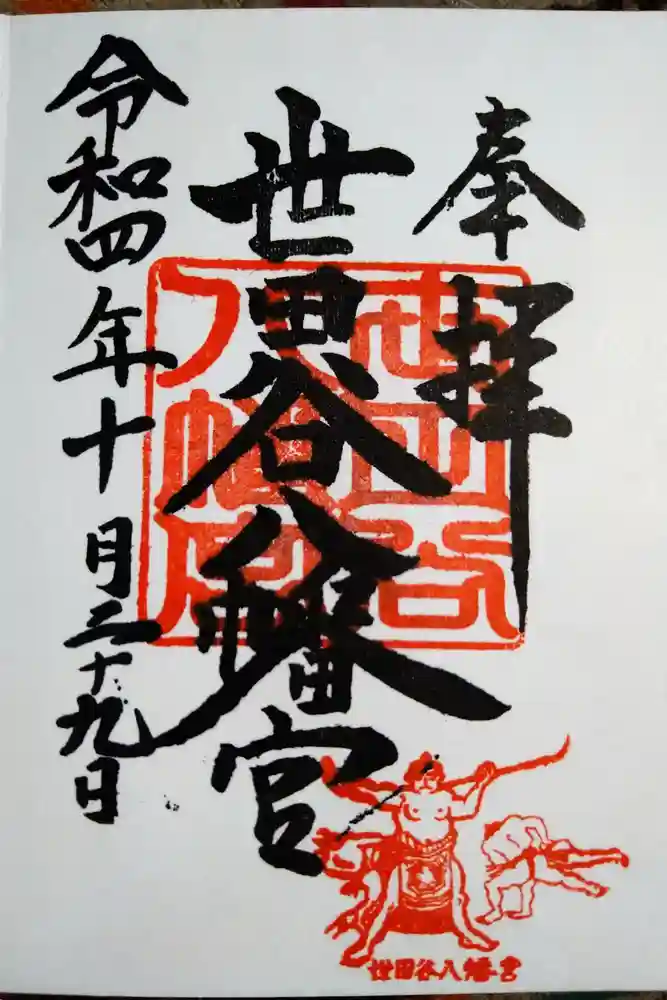 奉拝
世田谷八幡宮
世田谷
八幡宮
令和四年十月二十九日
世田谷八幡宮